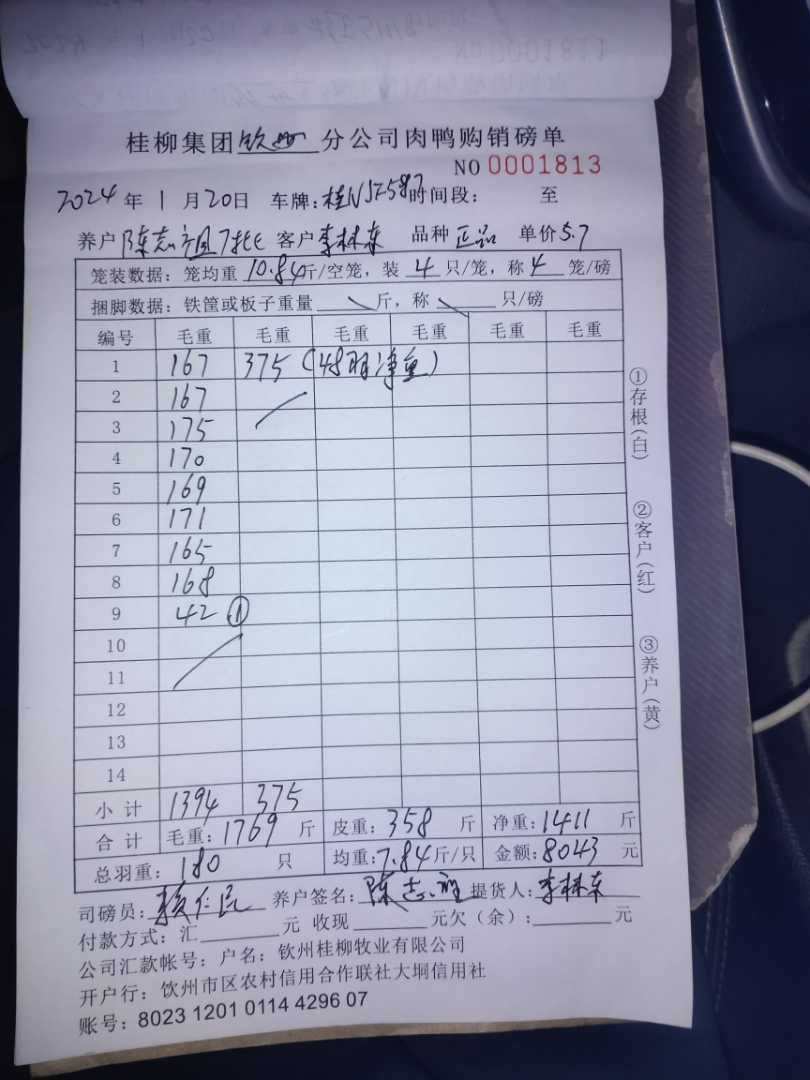 桂柳集团钦州分公司肉鸭购销磅单
NO 0001813
2024年1月20日 车牌:桂NJF587时间段: 至
养户 陈志祖7批 客户李林东 品种 正品 单价5.7
笼装数据: 笼均重 10.84斤/空笼, 装 4 只/笼, 称 4 笼/磅
捆脚数据: 铁筐或板子重量 斤, 称 只/磅
编号 毛重 毛重 毛重 毛重 毛重 毛重
1 167 375 (48羽净重)
2 167
3 175
4 170
5 169
6 171
7 165
8 168
9 42 ①
10
11
12
13
14
小计 1394 375
合计 毛重: 1769 斤 皮重: 358 斤 净重: 1411 斤
总羽重: 180 只 均重: 7.84斤/只 金额: 8043 元
司磅员: 养户签名: 陈志祖 提货人: 李林东
付款方式: 汇 元 收现 元欠(余): 元
公司汇款帐号: 户名: 钦州桂柳牧业有限公司
开户行: 钦州市区农村信用合作联社大垌信用社
账号: 8023 1201 0114 4296 07
①存根(白)
②客户(红)
③养户(黄)